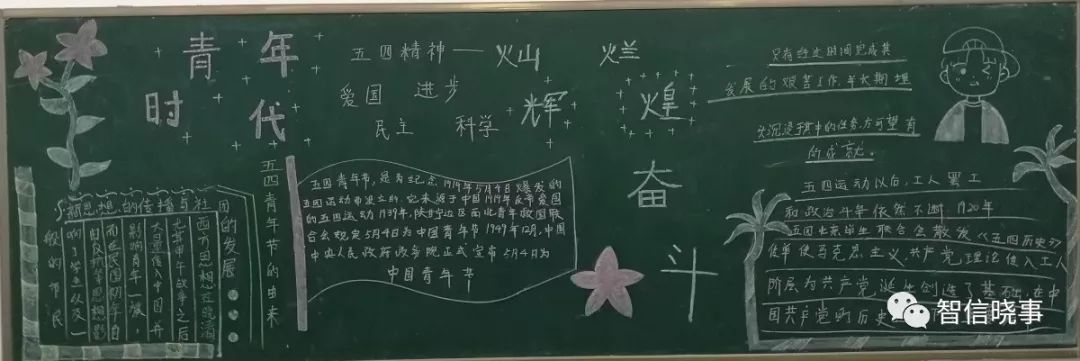 青年
时代
五四精神——火山 烂
爱国 进步 辉 煌
民主 科学
奋
斗
只有经过时间完成其
发展的艰苦工作,并长期埋
头沉浸于其中的任务,方可望有
所成就。
新思想的传播与社团的发展
西方思想在晚清
尤其甲午战争之后
大量传入中国并
影响青年一辈,
而在民国初年自
五四青年节的由来
五四青年节,是为纪念1919年5月4日爆发的
五四运动而设立的,它来源于中国1919年反帝爱国
的五四运动,1939年,陕甘宁边区西北青年救国联
合会规定5月4日为中国青年节1949年12月,中国
中央人民政府政务院正式宣布5月4日为
中国青年节
五四运动以后,工人罢工
和政治斗争依然不断,1920年
五四北京学生联合会散发《五四历史》
传单使马克思主义,共产党理论传入工人
阶层为共产党诞生创造了基础,在中
国共产党的历史
智信晓事